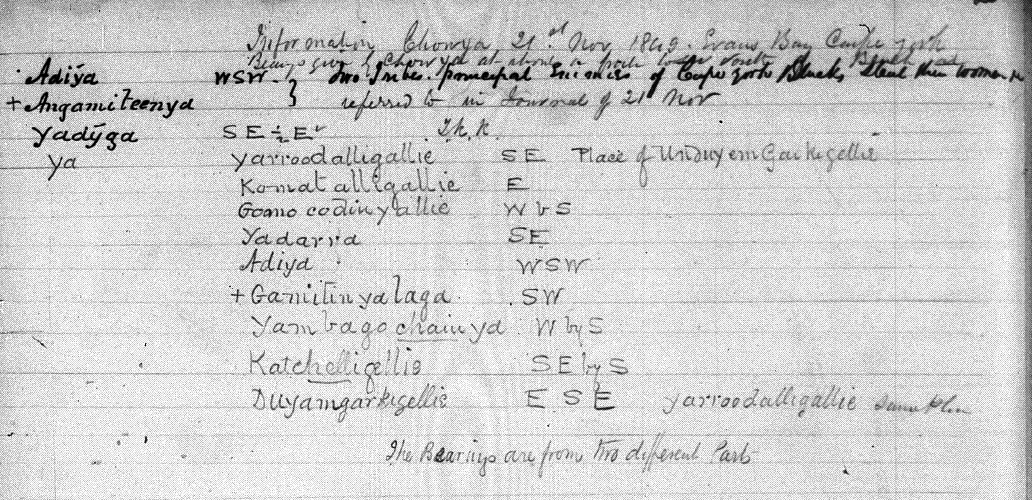 Information Chowya, 21st Nov 1899. Evans Bay Cape York
Bearings given by Chowya at about a
Adiya WSW } Two Tribes. principal Enemies of Cape York Blacks Steal their women
+ Angamiteenya referred to in Journal of 21 Nov
Yadyga SE ½ E
Ya Yarroodalligallie SE Place of Unduyemgarkigellie
Komatalligallie E
Gomocodinyallie W b S
Yadarra SE
Adiya WSW
+ Gamitinyalaga SW
Yambagochainya W by S
Katchelligellie SE by S
Duyamgarkigellie ESE Yarroodalligallie same place
The Bearings are from two different Parts